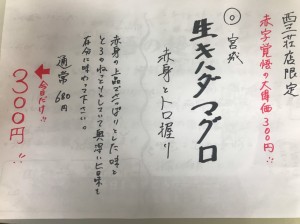 雲荘店限定
赤字覚悟の大特価300円
◎宮城
生キハダマグロ
赤身とトロ握り
赤身の上品でさっぱりとした味と
とろのねっとりとしていて奥深い旨味を
存分に味わって下さい。
通常680円
今日だけ!!
300円!!